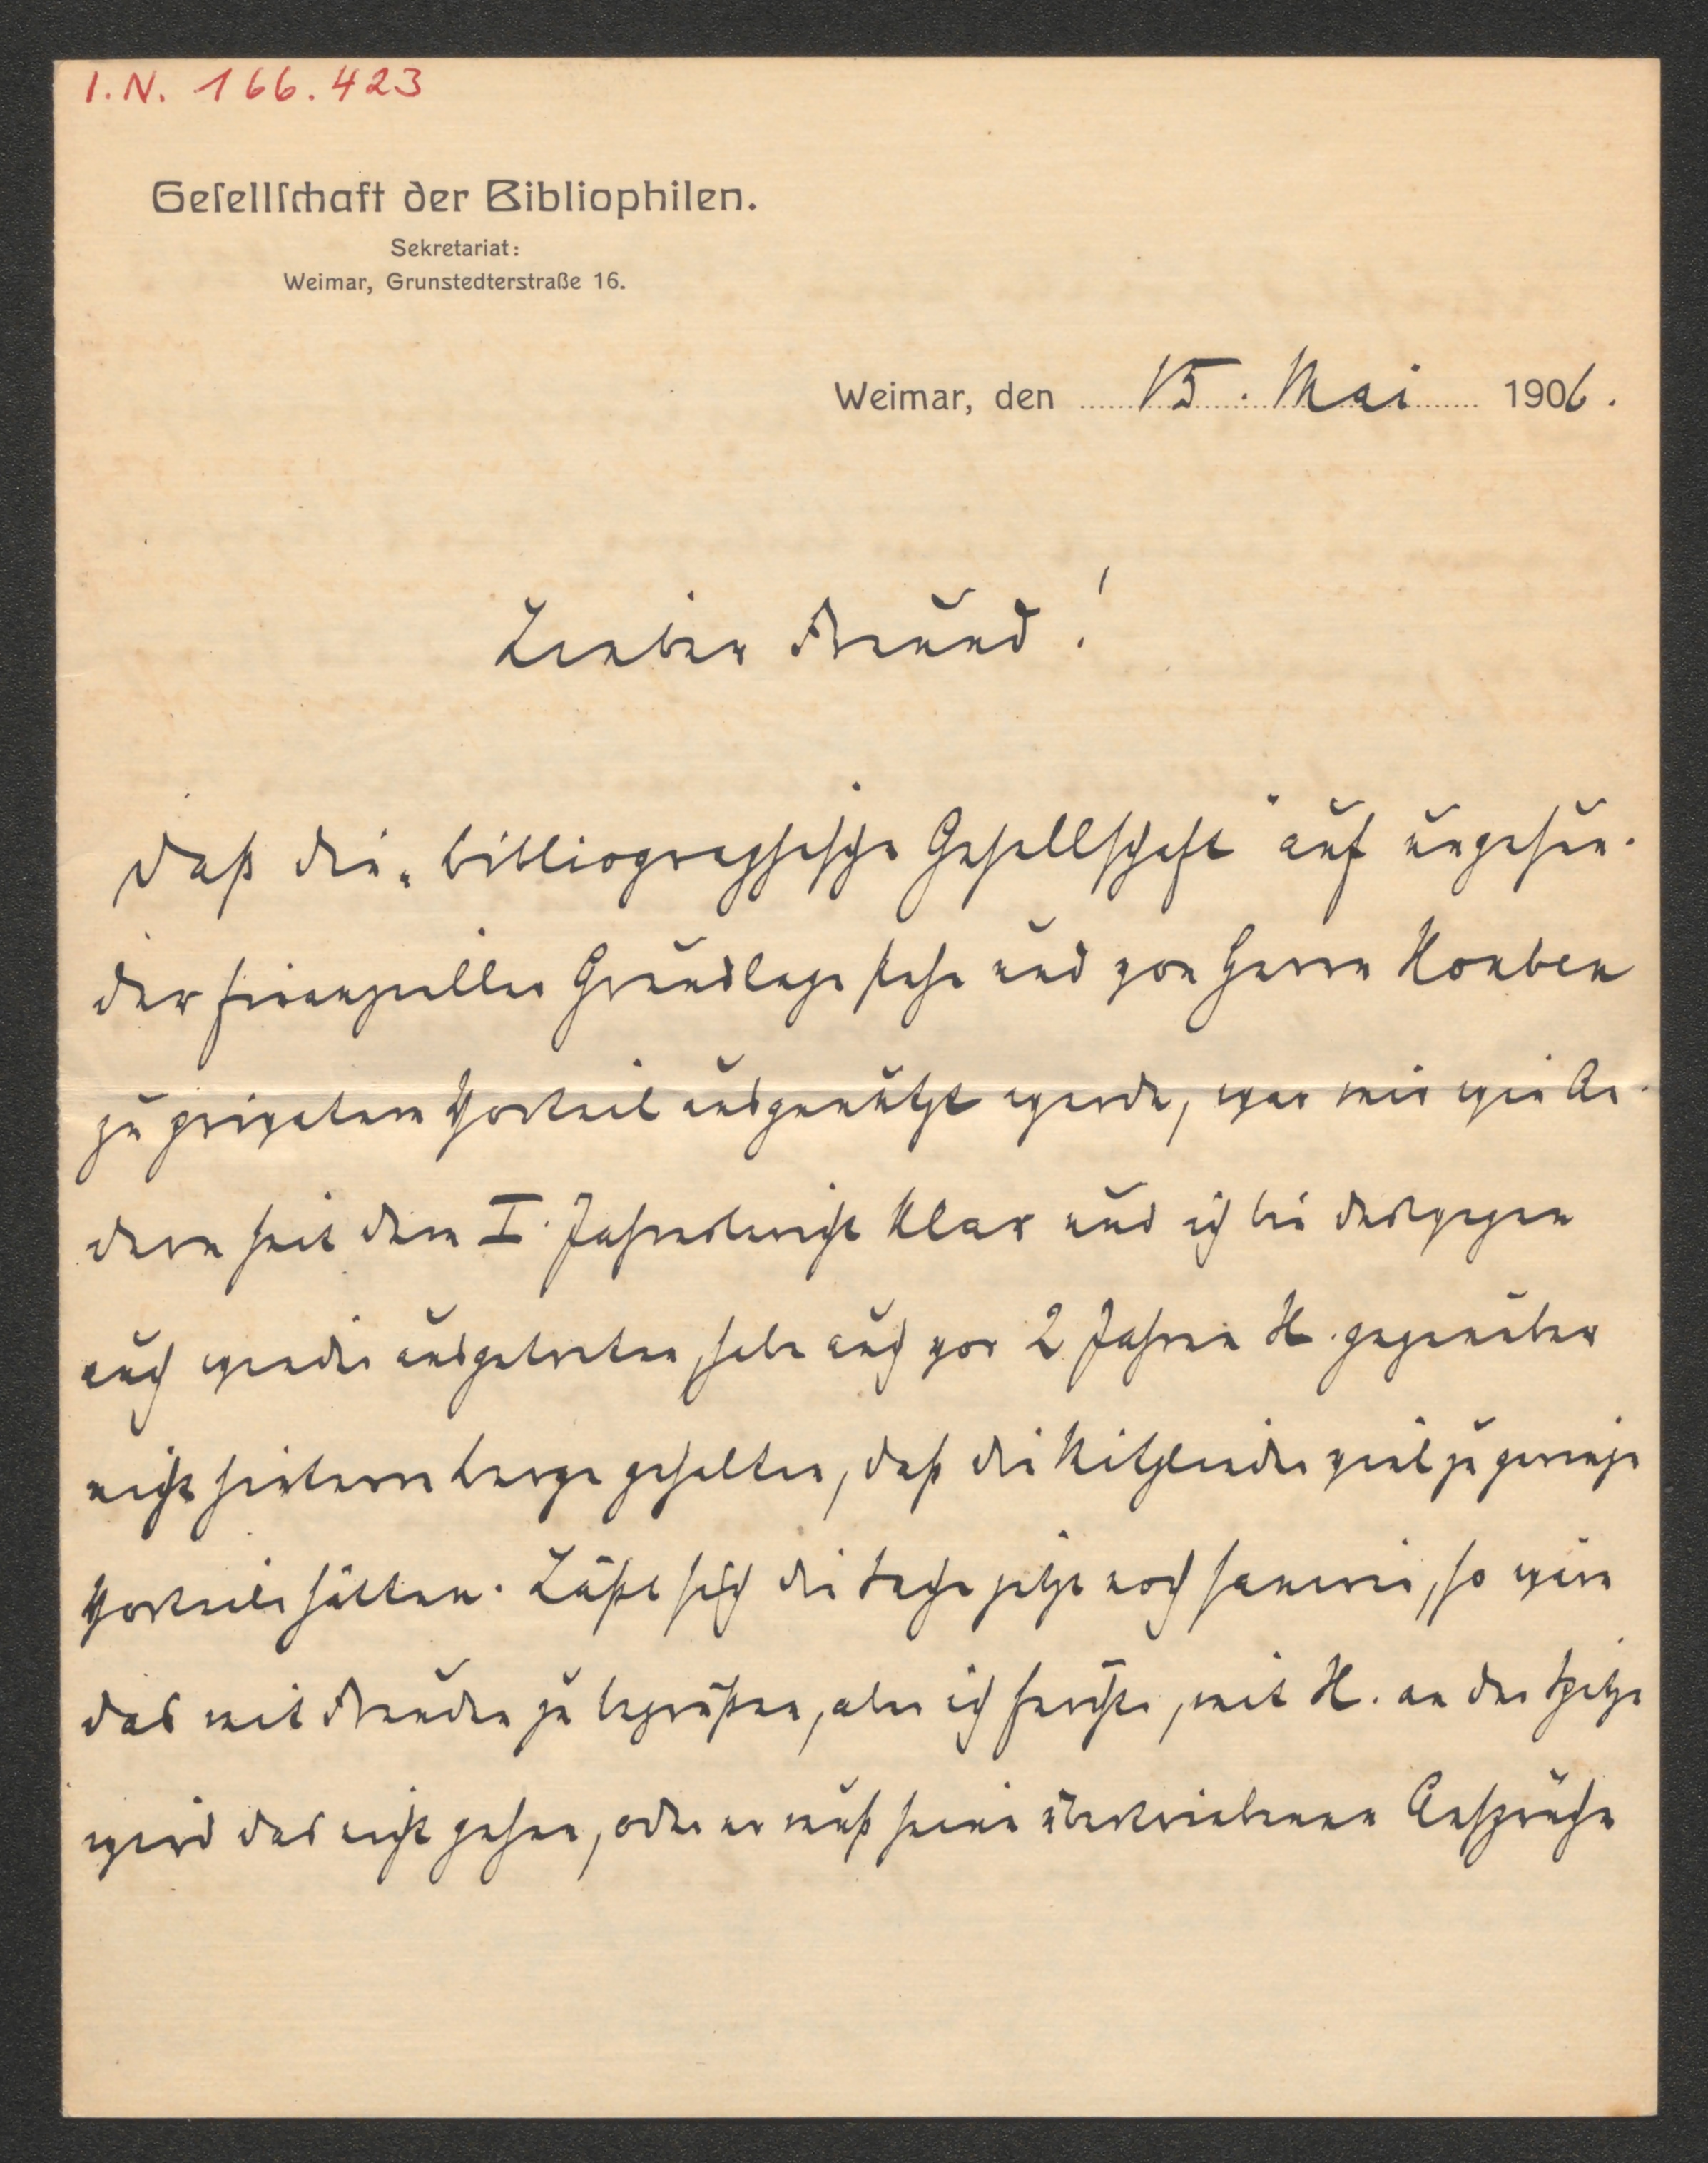 I.N. 166.423
Gesellschaft der Bibliophilen.
Sekretariat:
Weimar, Grunstedterstraße 16.
Weimar, den 15. Mai 1906.
Lieber Freund!
Daß die „bibliographische Gesellschaft“ auf ungesun-
der finanzieller Grundlage stehe und von Herrn Houben
zu privatem Vorteil ausgenützt werde, war mir wie An-
dern seit dem I. Jahresbericht klar und ich bin deswegen
auch wieder ausgetreten, habe auch vor 2 Jahren H. gegenüber
nicht hinterm Berge gehalten, daß die Mitglieder viel zu geringe
Vorteile hätten. Läßt sich die Sache jetzt noch sanieren, so wäre
das mit Freuden zu begrüßen, aber ich fürchte, mit H. an der Spitze
wird das nicht gehen, oder er muß seine übertriebenen Ansprüche